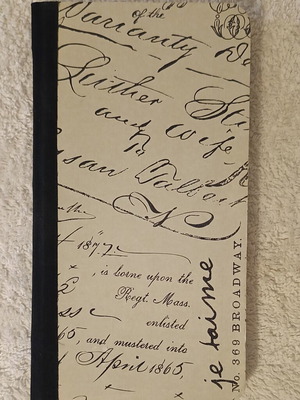 of the
Warranty De
Luther Stu
and wife,
To
Susan Talbott
1877
, is borne upon the
Regt. Mass.
enlisted
65, and mustered into
April 1865
je taime
No. 369 BROADWAY.